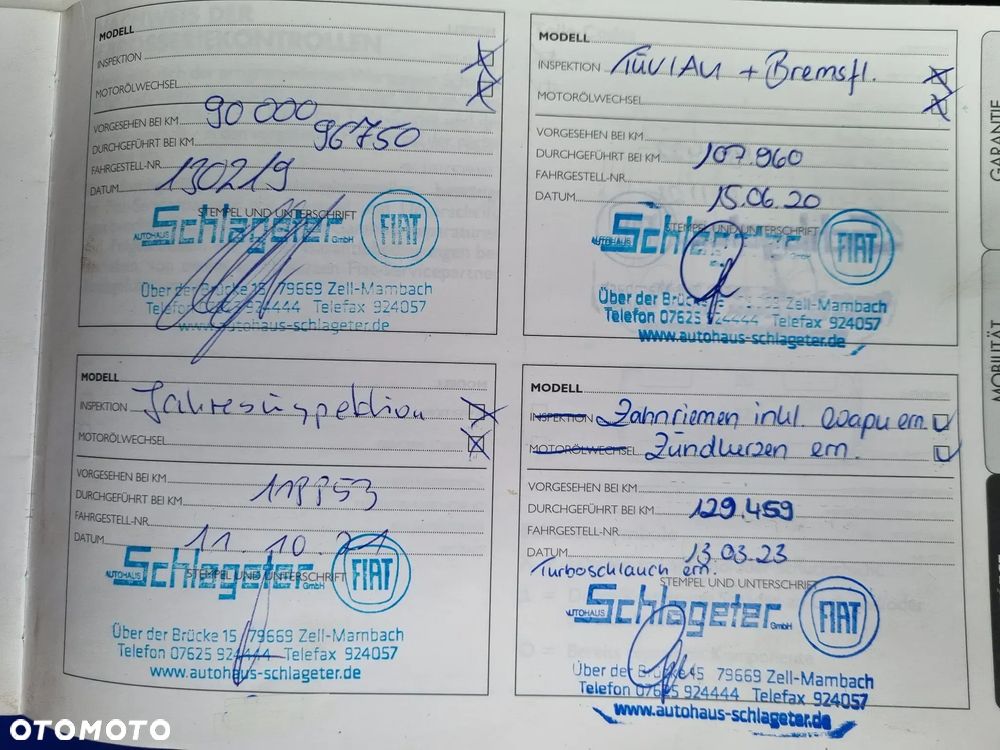 MODELL
INSPEKTION
MOTORÖLWECHSEL
VORGESEHEN BEI KM 90 000
DURCHGEFÜHRT BEI KM 96750
FAHRGESTELL-NR.
DATUM 130219
STEMPEL UND UNTERSCHRIFT
AUTOHAUS Schlageter GmbH FIAT
Über der Brücke 15 79669 Zell-Mambach
Telefon 07625 924444 Telefax 924057
www.autohaus-schlageter.de
MODELL
INSPEKTION TÜV/AU + Bremsfl.
MOTORÖLWECHSEL
VORGESEHEN BEI KM
DURCHGEFÜHRT BEI KM 107.960
FAHRGESTELL-NR.
DATUM 15.06.20
STEMPEL UND UNTERSCHRIFT
AUTOHAUS Schlageter GmbH FIAT
Über der Brücke Zell-Mambach
Telefon 07625 924444 Telefax 924057
www.autohaus-schlageter.de
MODELL
INSPEKTION Jahresinspektion
MOTORÖLWECHSEL
VORGESEHEN BEI KM
DURCHGEFÜHRT BEI KM
FAHRGESTELL-NR.
DATUM 11.10.21
STEMPEL UND UNTERSCHRIFT
AUTOHAUS Schlageter GmbH FIAT
Über der Brücke 15 79669 Zell-Mambach
Telefon 07625 924444 Telefax 924057
www.autohaus-schlageter.de
MODELL
INSPEKTION Zahnriemen inkl. Wapu ern.
MOTORÖLWECHSEL Zündkerzen ern.
VORGESEHEN BEI KM
DURCHGEFÜHRT BEI KM 129.459
FAHRGESTELL-NR.
DATUM 13.03.23
Turboschlauch ern.
STEMPEL UND UNTERSCHRIFT
AUTOHAUS Schlageter GmbH FIAT
Über der Brücke 15 79669 Zell-Mambach
Telefon 07625 924444 Telefax 924057
www.autohaus-schlageter.de
GARANTIE
MOBILITÄT
OTOMOTO